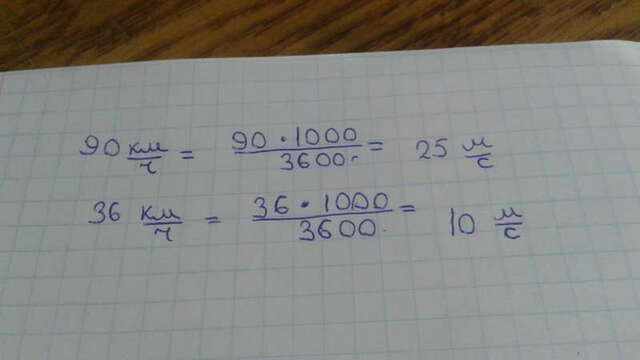 90 км/ч = 90 · 1000 / 3600 = 25 м/с
36 км/ч = 36 · 1000 / 3600 = 10 м/с